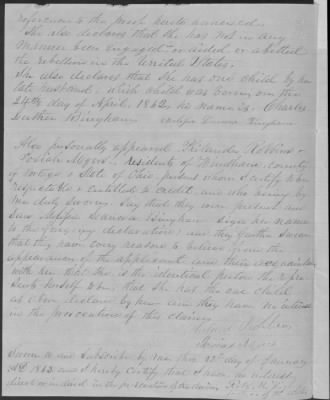 reference to the proof hereto annexed.
She also declares that she has not in any
manner been engaged or aided or abetted
the rebellion in the United States.
She also declares that she has one child by her
late husband, which child was born on the
24th day of April, 1862, his name is Charles
Luther Bingham
Bingham
Also personally appeared Robbins &
Myers, residents of Windham, county
of Portage & State of Ohio, persons whom I certify to be
respectable & entitled to credit, and who being by
me duly sworn, say that they were present and
saw Bingham sign her name
to the foregoing declaration; and they further swear
that they have every reason to believe from the
appearance of the applicant and their acquaintance
with her that she is the identical person she repre
sents herself to be, that she has the one child
as above declared by her and they have no interest
in the prosecution of this claim.
Robbins
Myers
Sworn to and subscribed by me this 22d day of January
AD 1863 and I hereby certify that I have no interest
direct or indirect in the prosecution of this claim